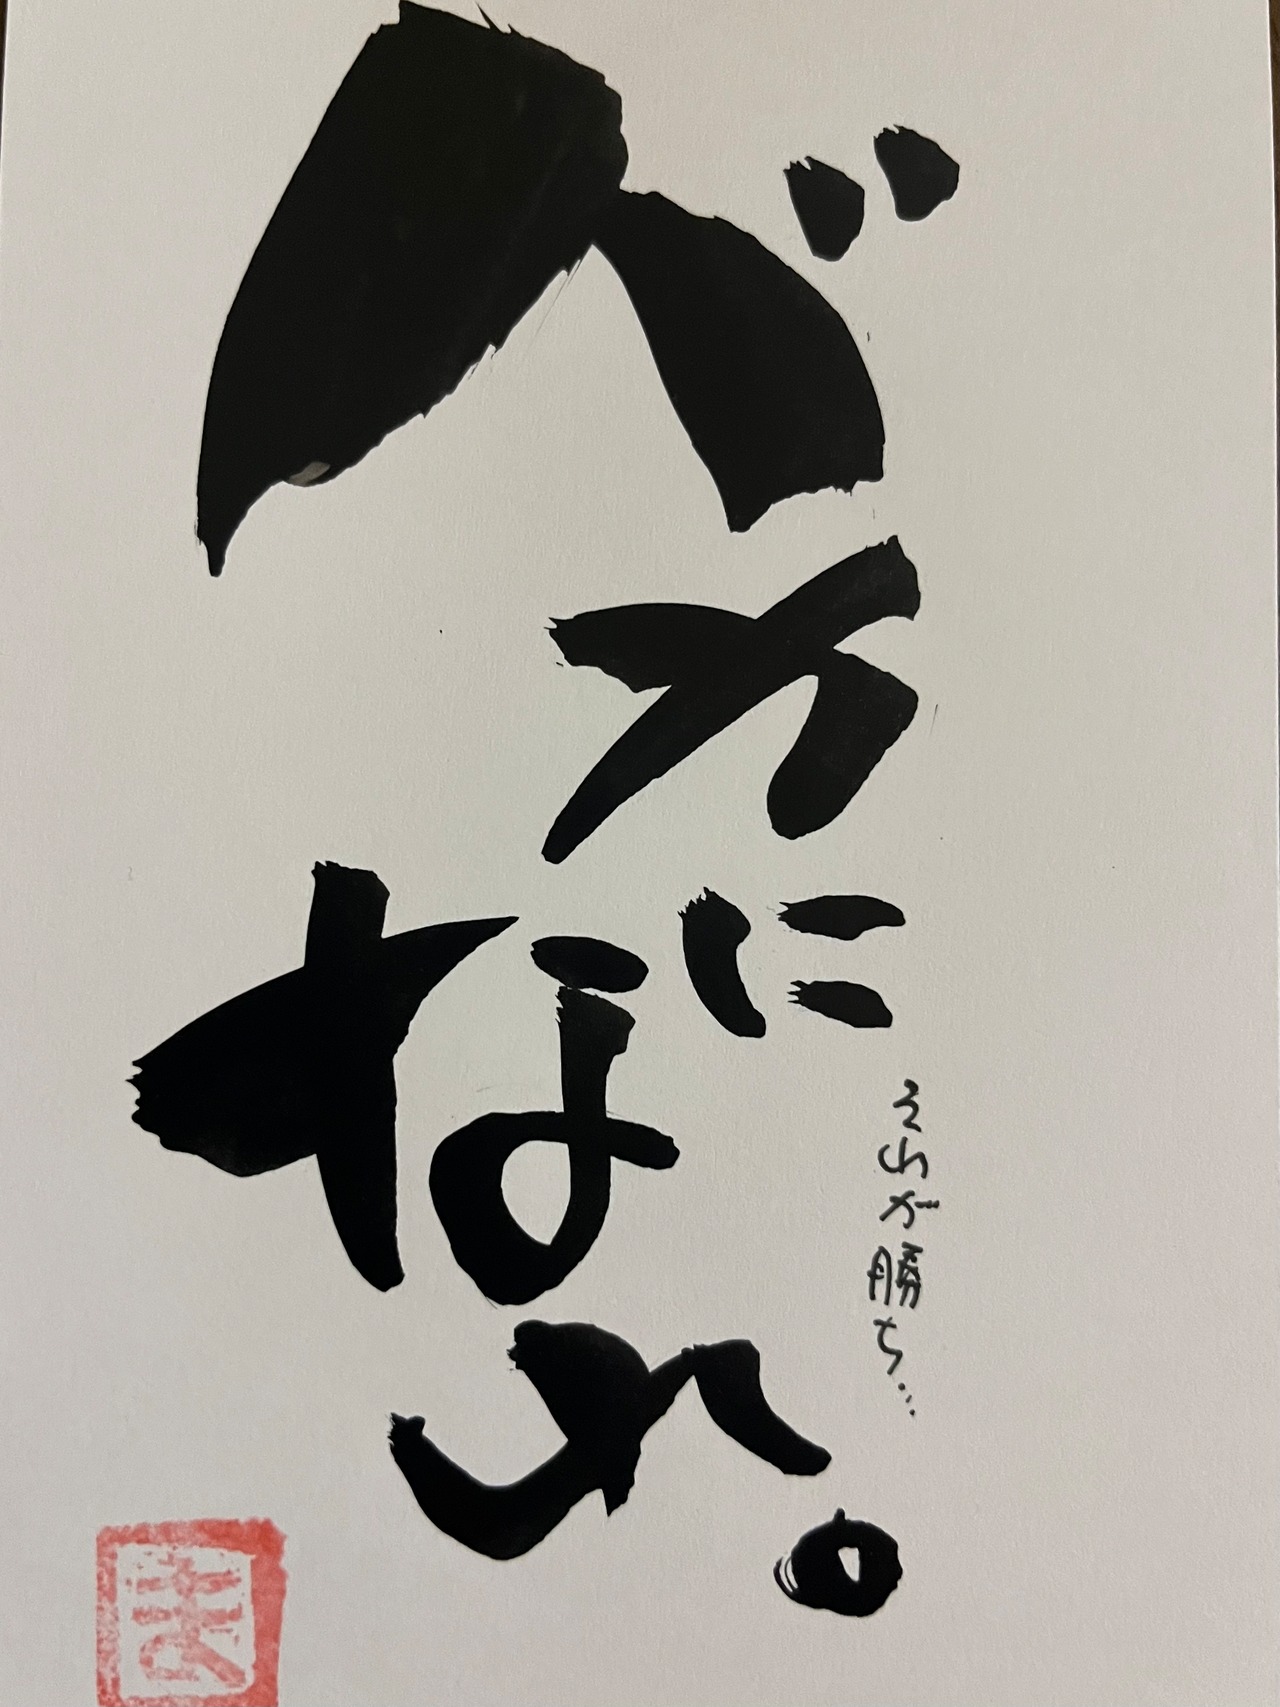 バカに
なれ。
それが勝ち…